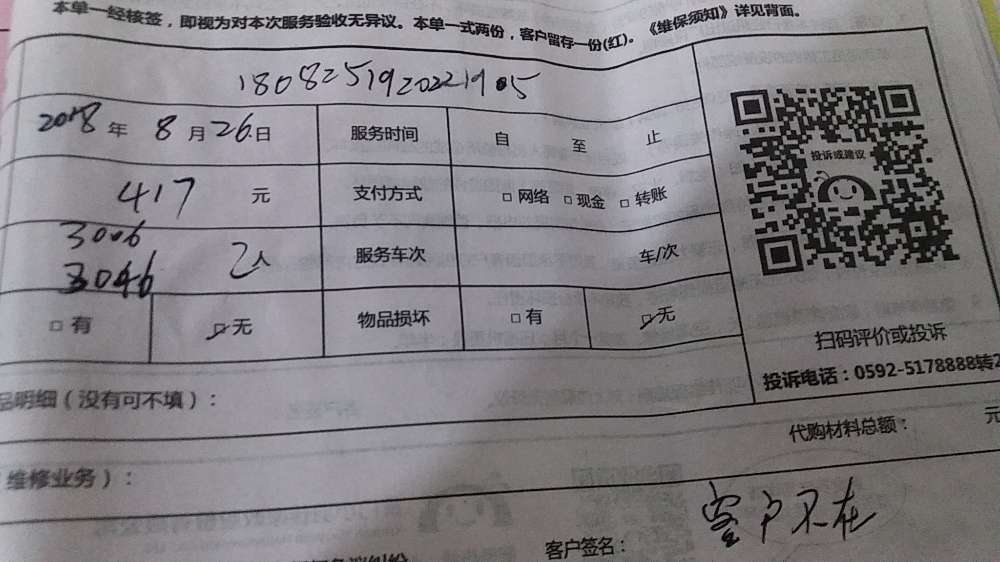 本单一经核签，即视为对本次服务验收无异议。本单一式两份，客户留存一份(红)。《维保须知》详见背面。
1808251920221905
2018年 8月26日 服务时间 自 至 止
417 元 支付方式 □网络 □现金 □转账
3006
3046 2人 服务车次 车/次
□有 ☑无 物品损坏 □有 ☑无
投诉或建议
扫码评价或投诉
投诉电话：0592-5178888转2
品明细（没有可不填）：
代购材料总额： 元
维修业务）：
客户签名： 客户不在